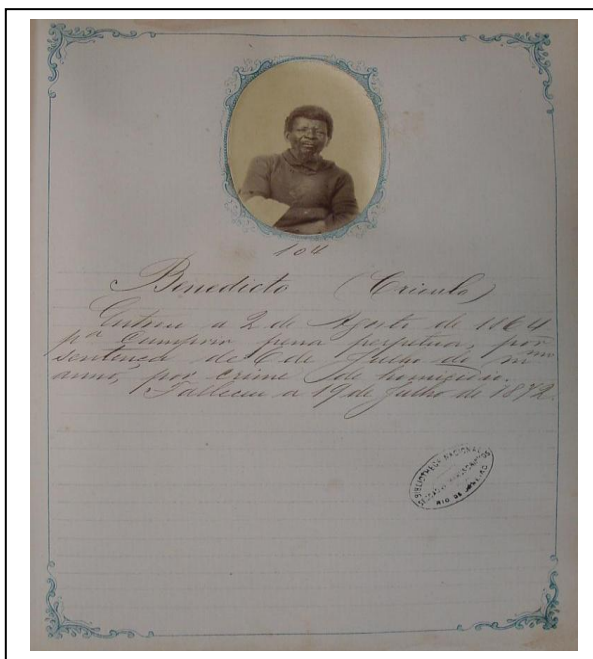 104
Benedicto (Crioulo)
Entrou a 2 de Agosto de 1864
pª cumprir pena perpetua, por
sentença de 6 de Julho do mmo
anno, por crime de homicidio.
Falleceu a 19 de Julho de 1872.
BIBLIOTHECA NACIONAL
RIO DE JANEIRO